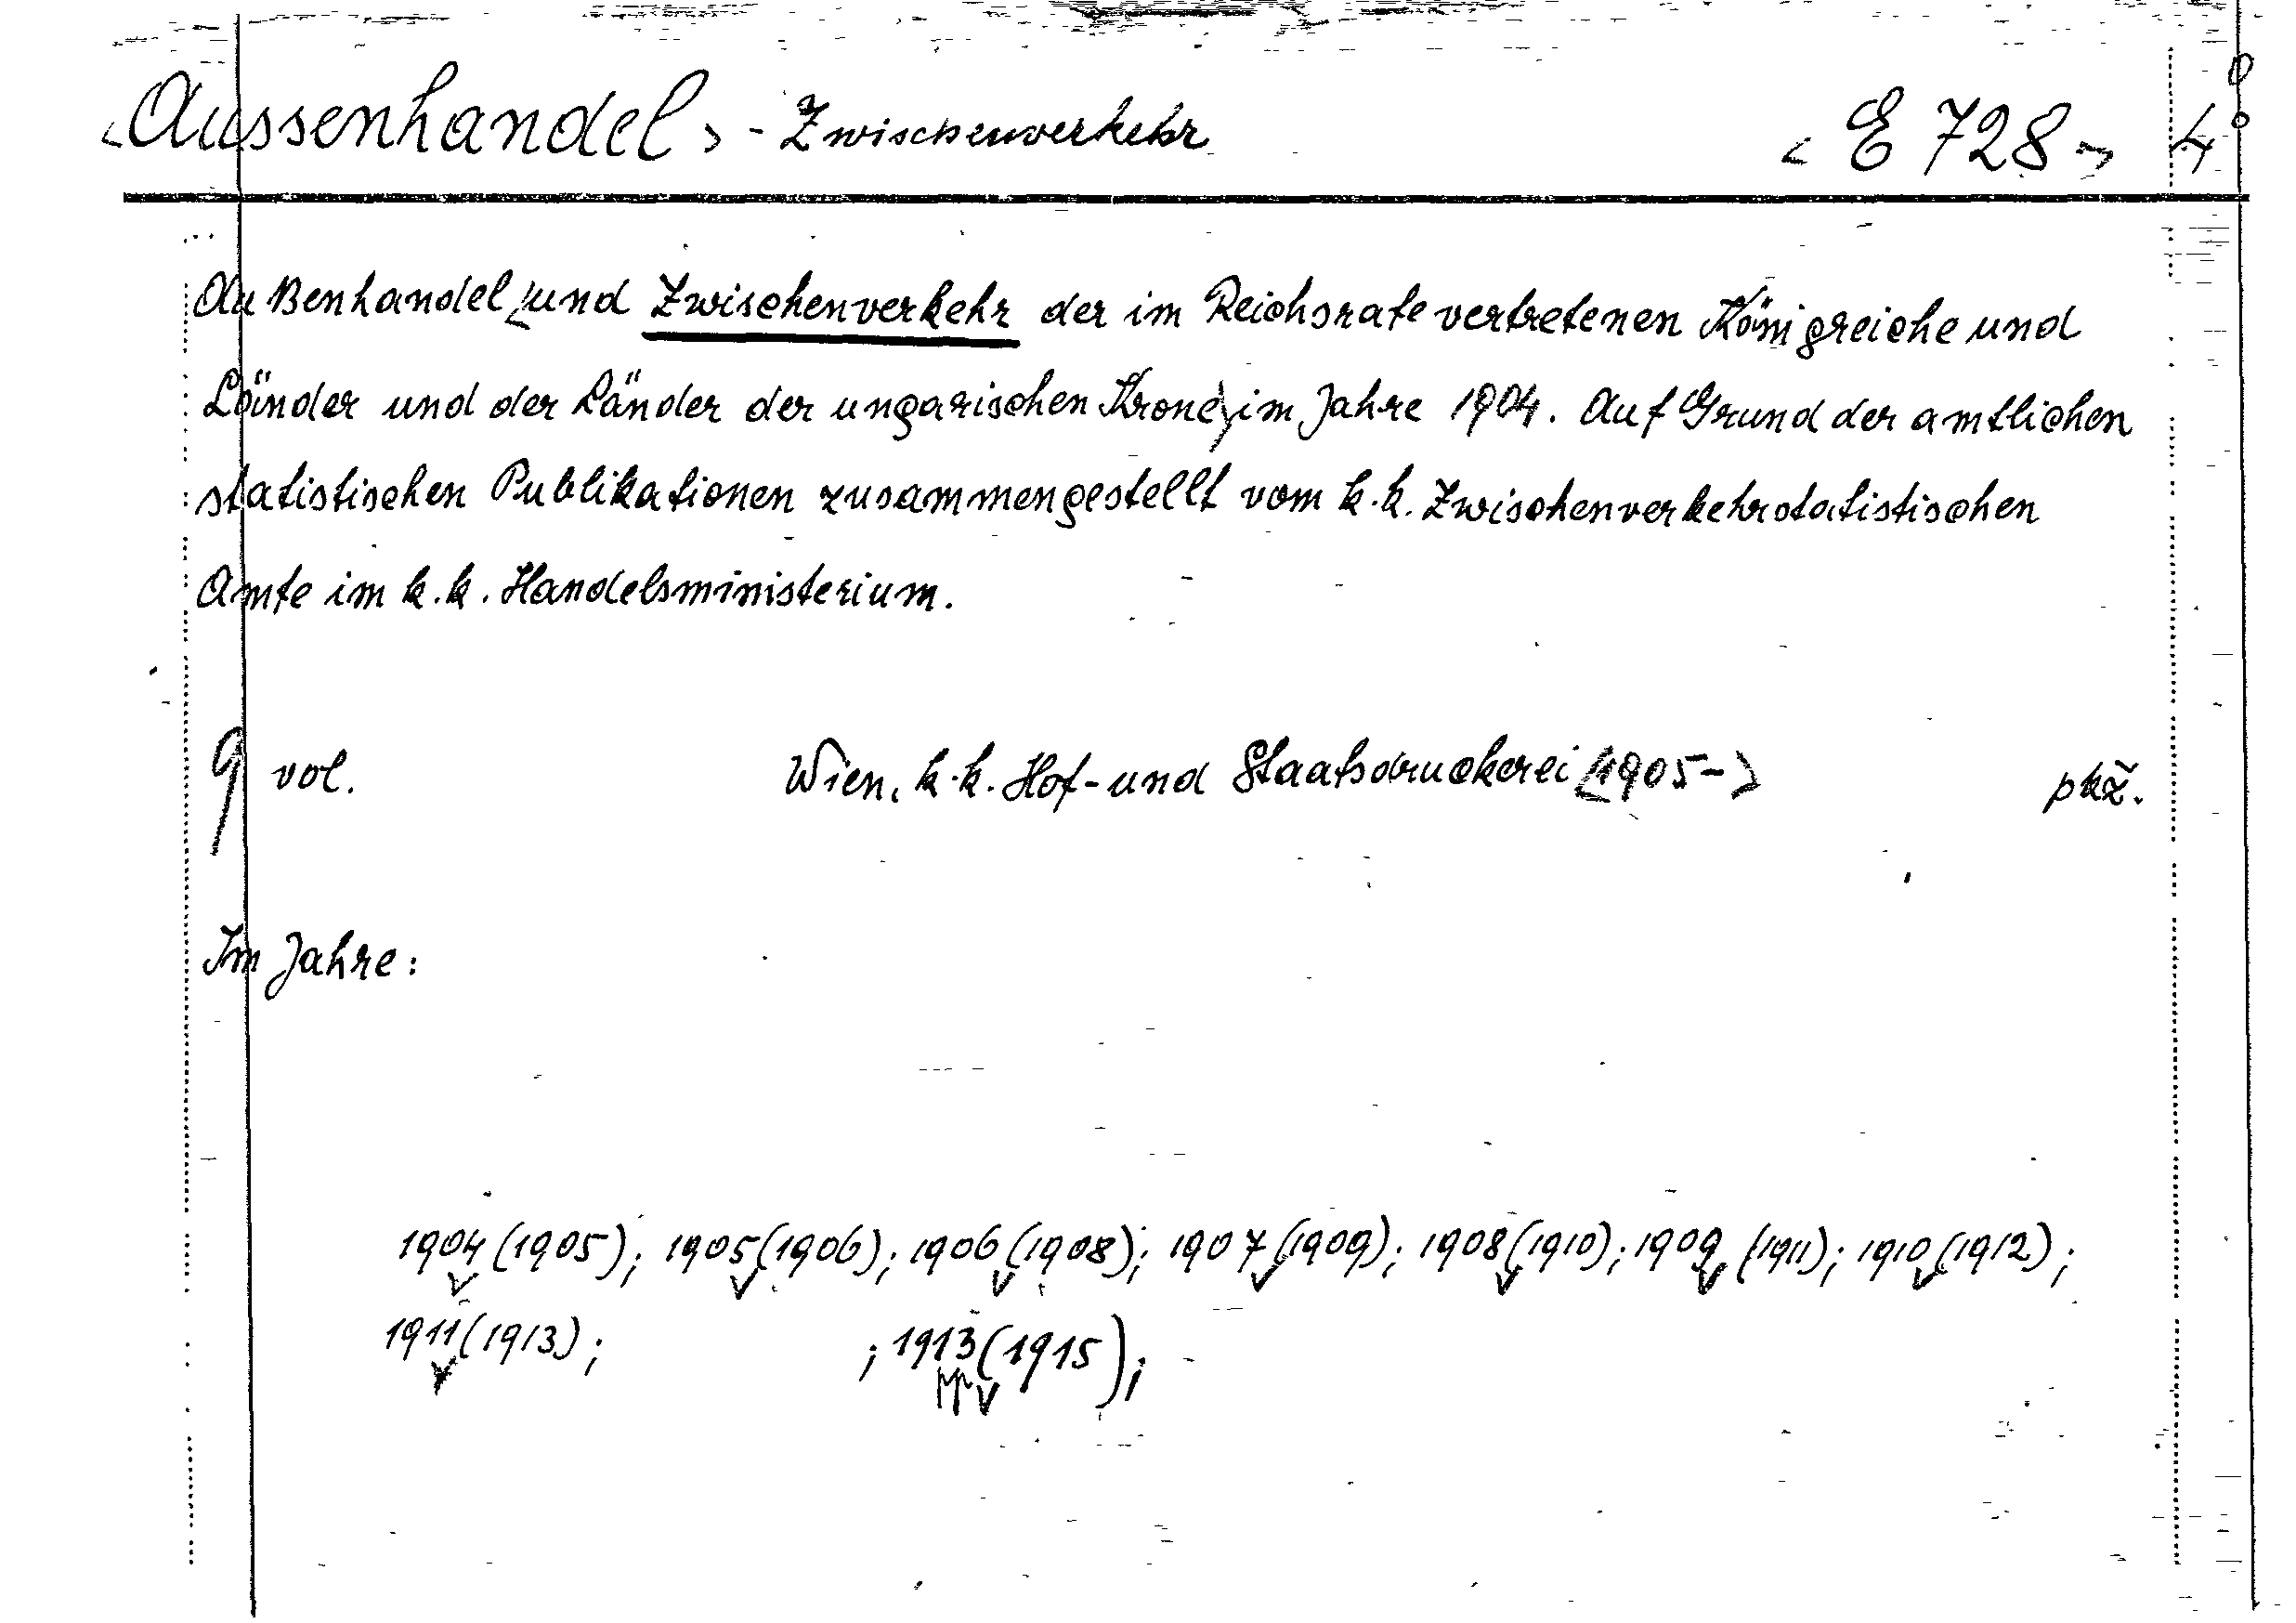 <Aussenhandel> - Zwischenverkehr <E 728> 4°
Außenhandel <und Zwischenverkehr der im Reichsrate vertretenen Königreiche und
Länder und der Länder der ungarischen Krone> im Jahre 1904. Auf Grund der amtlichen
statistischen Publikationen zusammengestellt vom k.k. Zwischenverkehrsstatistischen
Amte im k.k. Handelsministerium.
9 vol. Wien, k.k. Hof- und Staatsdruckerei <1905-> pkž.
Im Jahre:
1904 (1905); 1905 (1906); 1906 (1908); 1907 (1909); 1908 (1910); 1909 (1911); 1910 (1912);
1911 (1913); ; 1913 (1915);